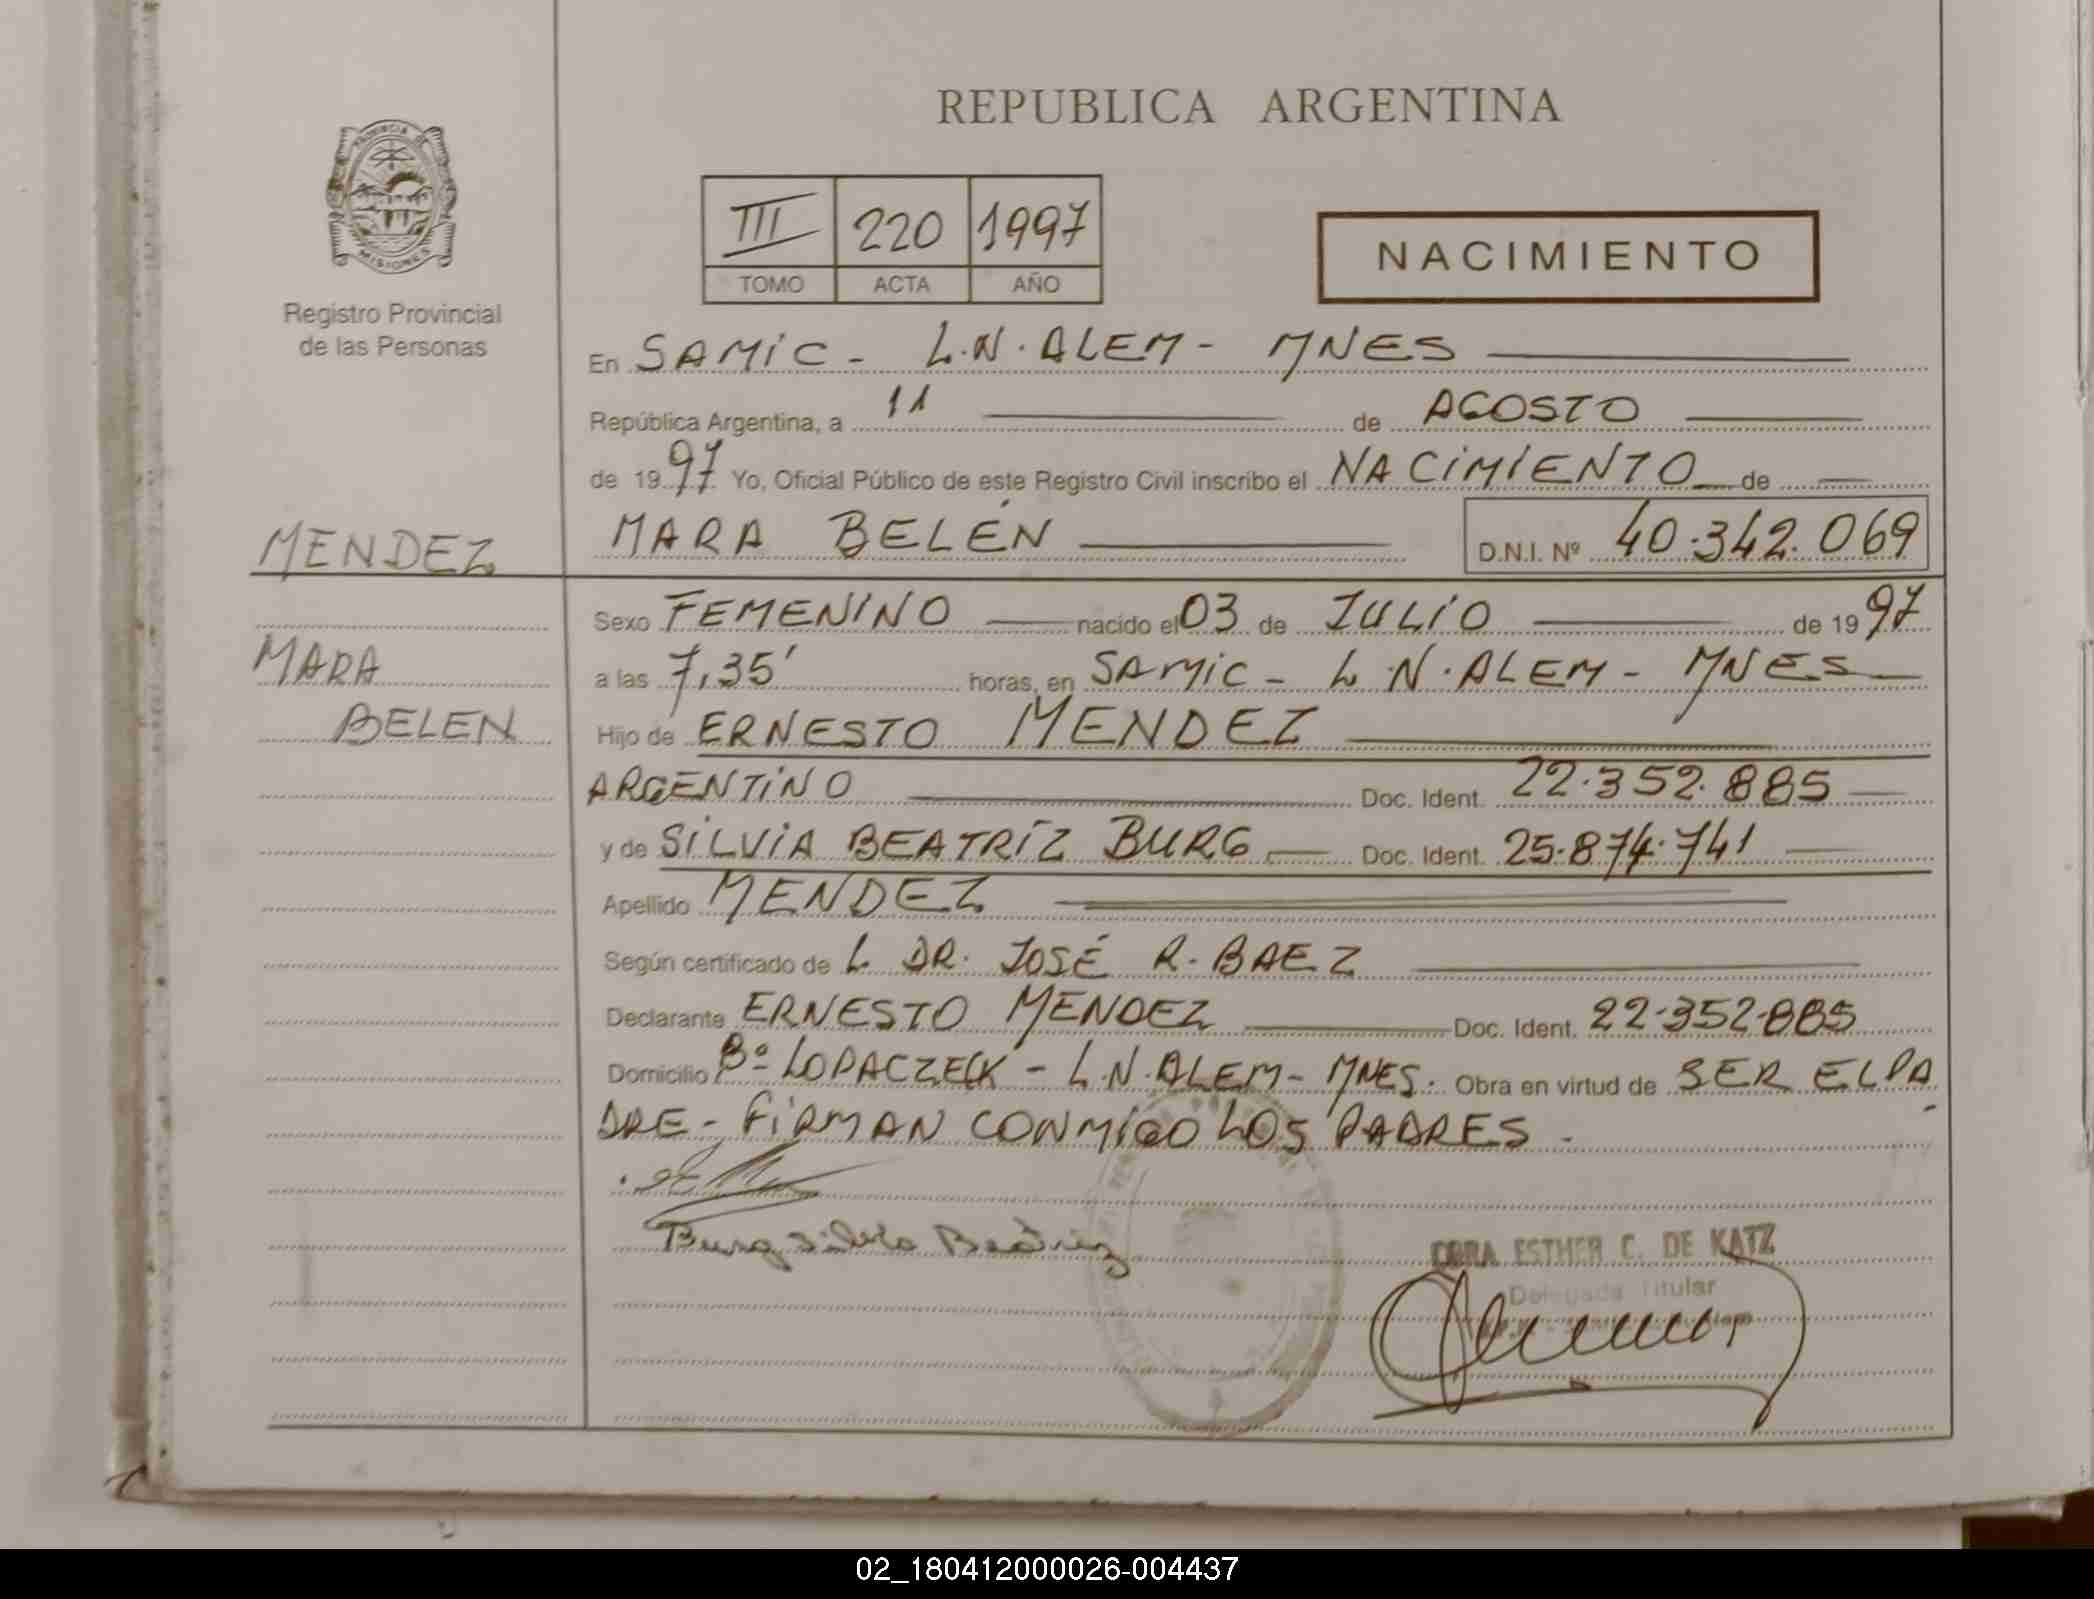 REPUBLICA ARGENTINA
PROVINCIA DE
MISIONES
Registro Provincial
de las Personas
III 220 1997
TOMO ACTA AÑO
NACIMIENTO
En SAMIC - L.N. ALEM - MNES
República Argentina, a 11 de AGOSTO
de 1997 Yo, Oficial Público de este Registro Civil inscribo el NACIMIENTO de
MENDEZ
MARA BELÉN
D.N.I. Nº 40.342.069
Sexo FEMENINO nacido el 03 de JULIO de 1997
MARA
a las 7,35' horas, en SAMIC - L.N. ALEM - MNES
BELEN
Hijo de ERNESTO MENDEZ
ARGENTINO Doc. Ident. 22.352.885
y de SILVIA BEATRÍZ BURG Doc. Ident. 25.874.741
Apellido MENDEZ
Según certificado de L. DR. JOSÉ R. BAEZ
Declarante ERNESTO MENDEZ Doc. Ident. 22.352.885
Domicilio Bº LOPACZECK - L.N. ALEM - MNES. Obra en virtud de SER EL PA
DRE - FIRMAN CONMIGO LOS PADRES.
Burg Silvia Beatriz
ESTHER C. DE KATZ
Delegada Titular
02_180412000026-004437